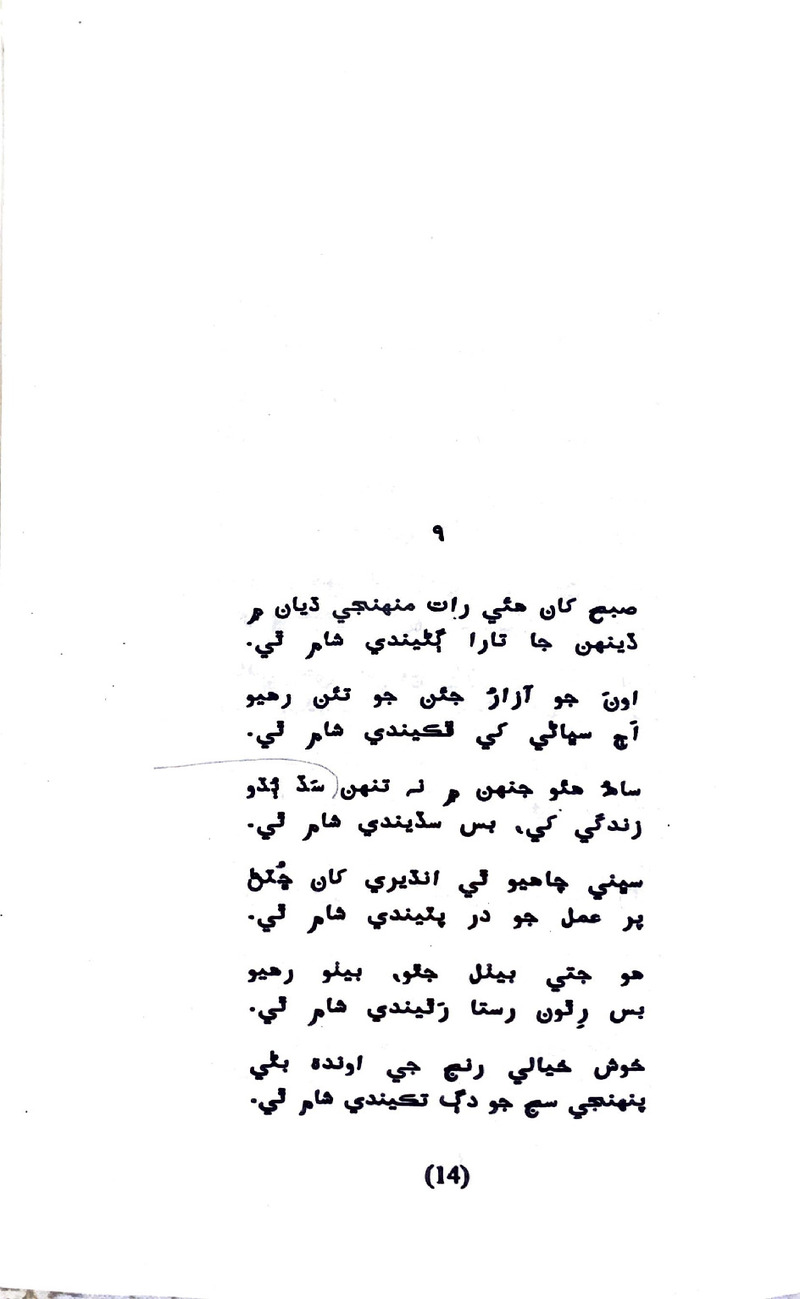 ٩
صبح کان هئي رات منهنجي ڌيان ۾
ڏينهن جا تارا ڳڻيندي شام ٿي.
اونَ جو آزارُ جئن جو تئن رهيو
اَڄ سڀاڻي کي ٿڪيندي شام ٿي.
ساھُ هئو جنهن ۾ نہ تنهن سَڏ ٻُڌو
زندگي کي، بس سڏيندي شام ٿي.
سڀني چاهيو ٿي انڌيري کان ڇُٽڻ
پر عمل جو در پٽيندي شام ٿي.
هو جتي بيٺل جٿو، بيٺو رهيو
بس رِٿون رستا رَٿيندي شام ٿي.
خوش خيالي رنج جي اوندھ بڻي
پنهنجي سچ جو دڳ تڪيندي شام ٿي.
(14)